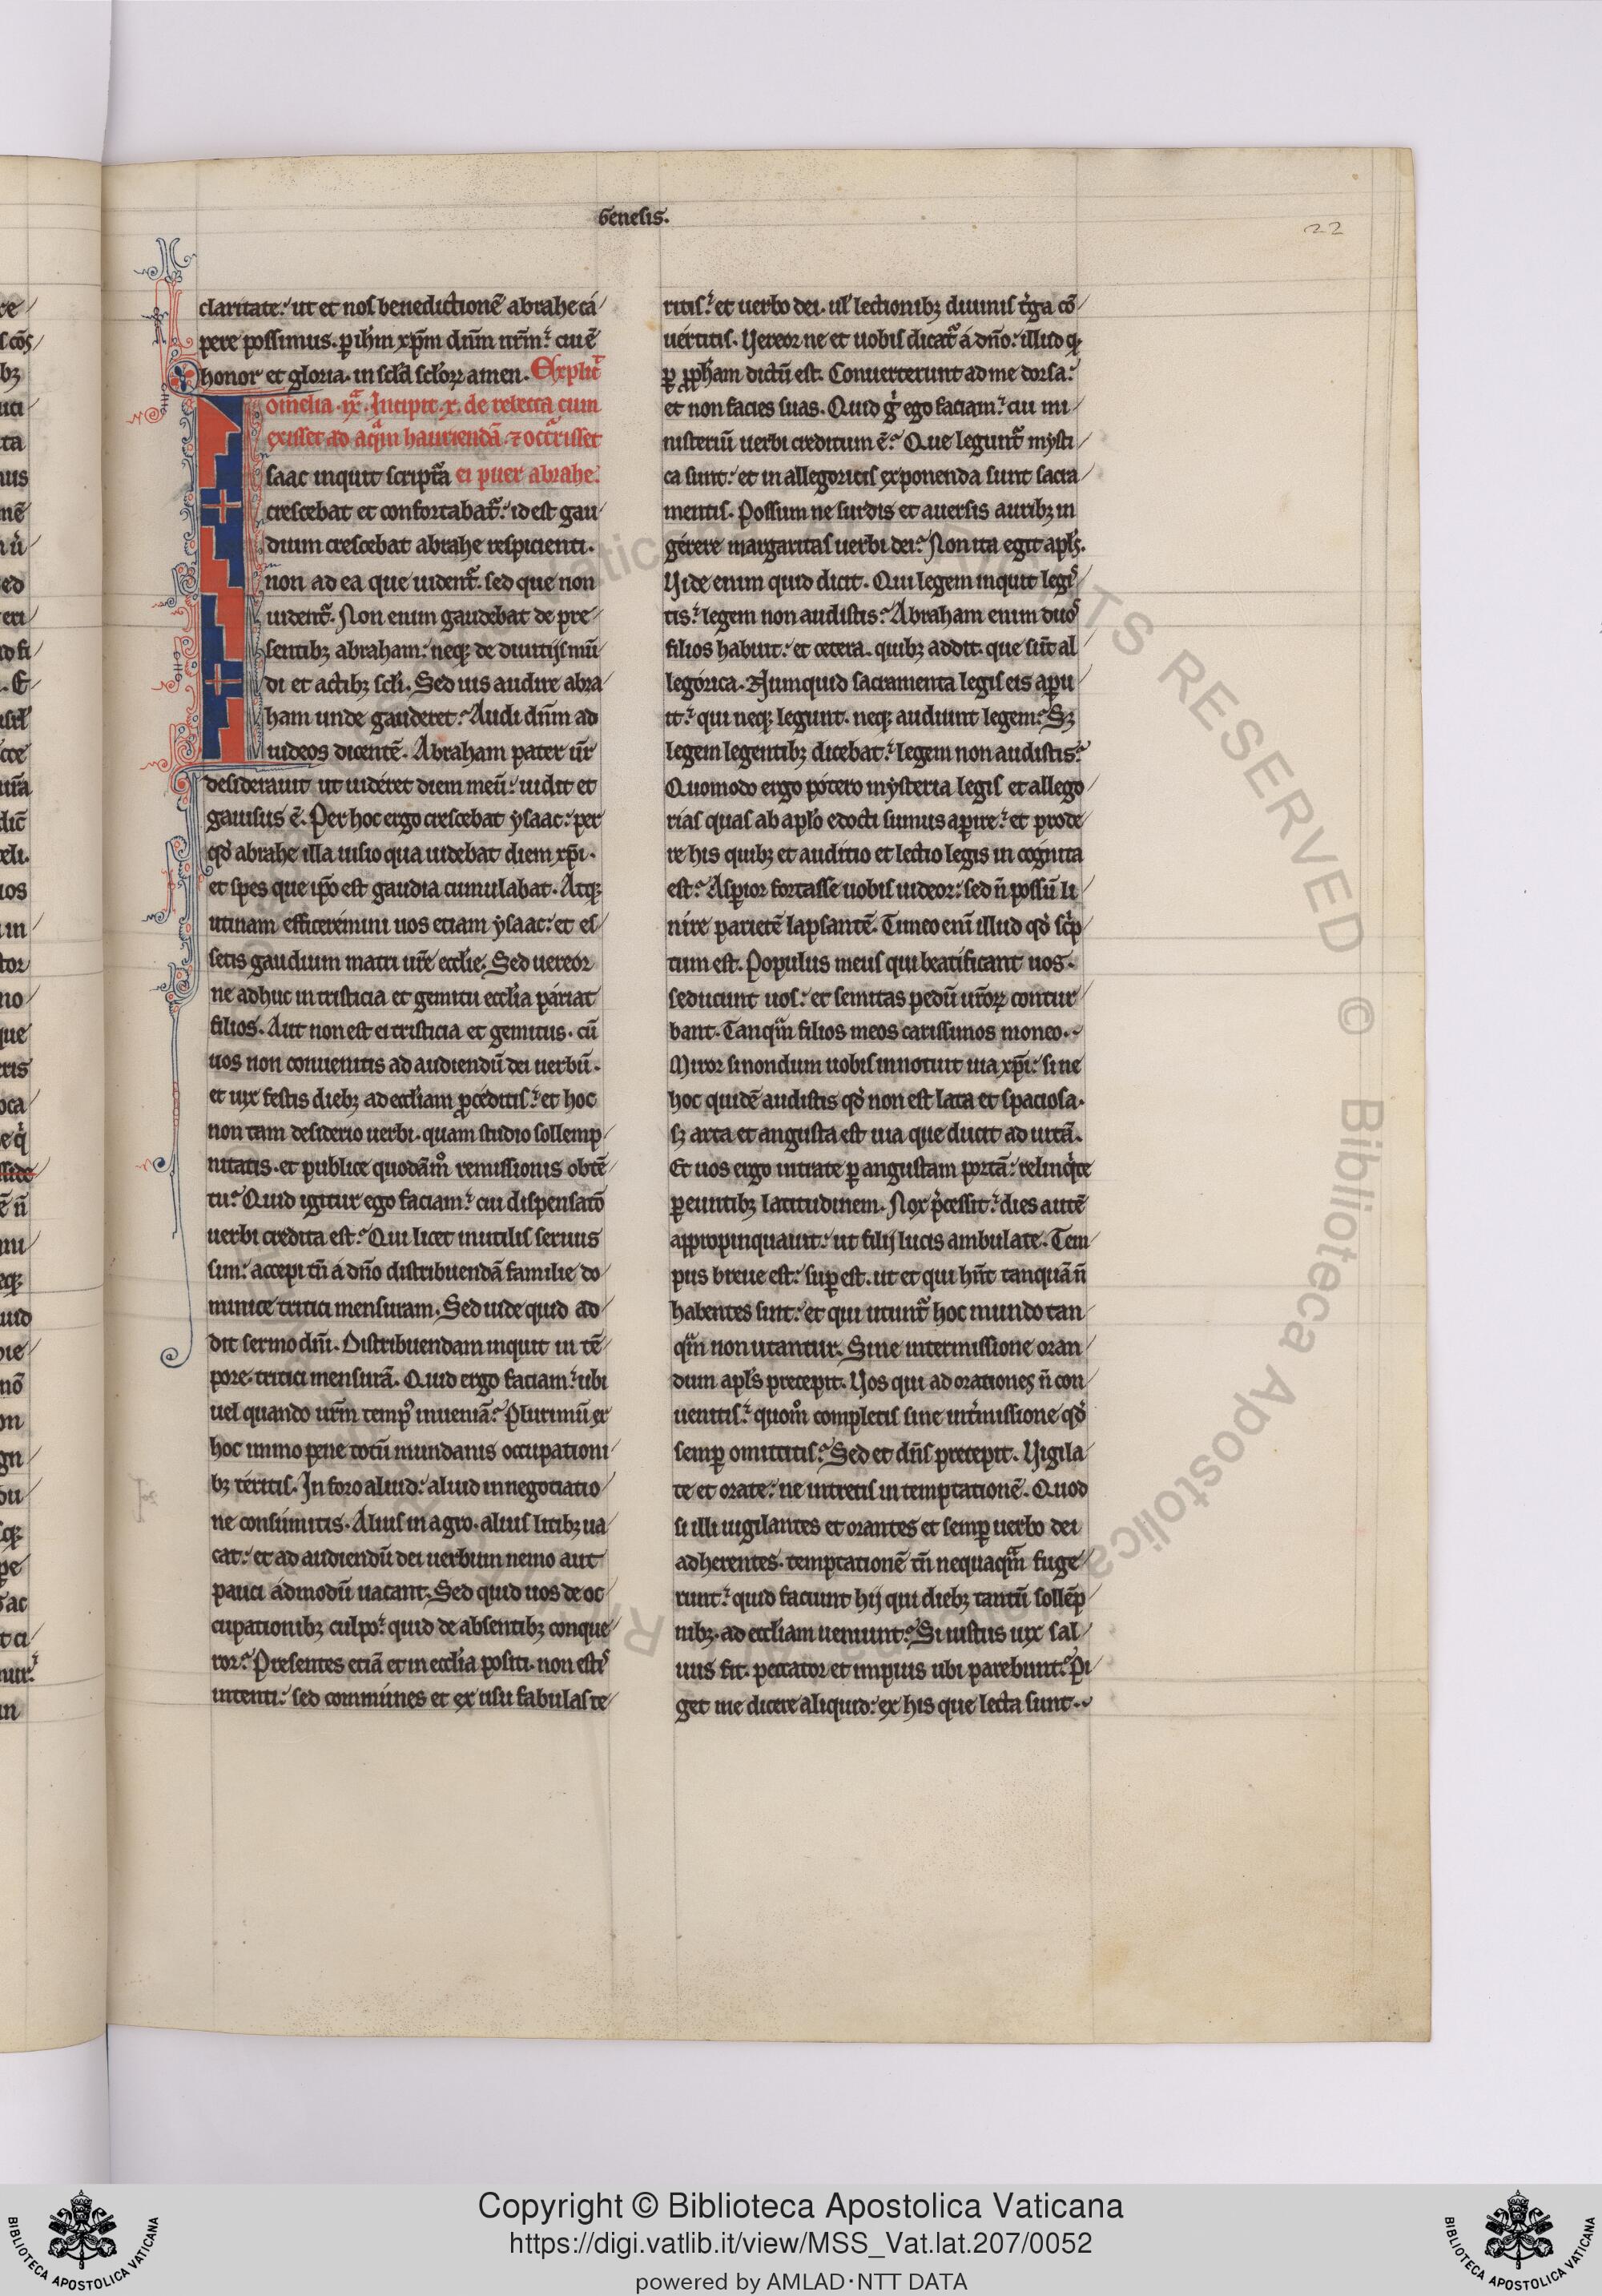 Genesis.
22
claritate: ut et nos benedictionē abrahe ca
pere possimus. ꝑ ihm xp̄m dn̄m nr̄m: cui ē
honor et gloria. in scl̄a scl̄oꝝ amen. Explic̄
omelia .ix. Incipit .x. de rebecca cum
exisset ad aquam hauriendā ⁊ occ̄risset
Isaac inquit scriptᷓa ei puer abrahe.
crescebat et confortabat᷑: id est gau
dium crescebat abrahe respicienti.
non ad ea que uident᷑. sed que non
uident᷑. Non enim gaudebat de pre
sentibꝫ abraham: neqꝫ de diuitijs mū
di et actibꝫ scl̄i. Sed uis audire abra
ham unde gauderet? Audi dn̄m ad
iudeos dicentē. Abraham pater ur̄
desiderauit ut uideret diem meū: uidit et
gauisus ē. Per hoc ergo crescebat ysaac: per
qd̄ abrahe illa uisio qua uidebat diem xp̄i.
et spes que ip̄o est gaudia cumulabat. Atqꝫ
utinam efficeremini uos etiam ysaac: et es
setis gaudium matri ur̄e eccl̄ie. Sed uereor
ne adhuc in tristicia et gemitu eccl̄ia pariat
filios. Aut non est ei tristicia et gemitus. cū
uos non conuenitis ad audiendū dei uerbū.
et uix festis diebꝫ ad eccl̄iam ꝓceditis: et hoc
non tam desiderio uerbi. quam studio sollemp
nitatis. et publice quodām̊ remissionis obtē
tu? Quid igitur ego faciam: cui dispensatō
uerbi credita est? Qui licet inutilis seruus
sim: accepi tn̄ a dn̄o distribuendā familie do
minice tritici mensuram. Sed uide quid ad
dit sermo dn̄i. Distribuendam inquit in tē
pore. tritici mensurā. Quid ergo faciam: ubi
uel quando ur̄m temp᷒ inueniā? Plurimū ex
hoc immo pene totū mundanis occupationi
bꝫ teritis. In foro aliud: aliud in negociatio
ne consumitis. Alius in agro. alius litibꝫ ua
cat: et ad audiendū dei uerbum nemo aut
pauci admodū uacant. Sed quid uos de oc
cupationibꝫ culpo: quid de absentibꝫ conque
ror? Presentes etiā et in eccl̄ia positi. non estis
intenti: sed communes et ex usu fabulas te
ritis: et uerbo dei. ul̄ lectionibꝫ diuinis t̄ga cō
uertitis. Uereor ne et uobis dicat᷑ a dn̄o: illud qꝫ
ꝑ ꝓph̄am dictū est. Conuerterunt ad me dorsa:
et non facies suas. Quid g̊ ego faciam: cui mi
nisteriū uerbi creditum ē? Que legunt᷑ mysti
ca sunt: et in allegoricis exponenda sunt sacra
mentis. Possum ne surdis et auersis auribꝫ in
gerere margaritas uerbi dei? Non ita egit apl̄s.
Uide enim quid dicit. Qui legem inquit legi
tis: legem non audistis? Abraham enim duos
filios habuit: et cetera. quibꝫ addit. que sūt al
legorica. Numquid sacramenta legis eis aperu
it: qui neqꝫ legunt. neqꝫ audiunt legem? Sꝫ
legem legentibꝫ dicebat: legem non audistis?
Quomodo ergo potero mysteria legis et allego
rias quas ab apl̄o edocti sumus aperire: et prode
re his quibꝫ et auditio et lectio legis incognita
est? Asperior fortasse uobis uideor: sed n̄ possū li
nire parietē lapsantē. Timeo eni illud qd̄ scͥp
tum est. Populus meus qui beatificant uos.
seducunt uos: et semitas pedū ur̄oꝝ contur
bant. Tanqᷓm filios meos carissimos moneo.
Miror si nondum uobis innotuit uia xp̄i: si ne
hoc quidē audistis qd̄ non est lata et spaciosa.
sꝫ arta et angusta est uia que ducit ad uitā.
Et uos ergo intrate ꝑ angustam portā: relinqͥte
ꝑeuntibꝫ latitudinem. Nox p̄cessit: dies autē
appropinquauit: ut filij lucis ambulate. Tem
pus breue est: suꝑest. ut et qui hn̄t tanquā n̄
habentes sint: et qui utunt᷑ hoc mundo tan
qᷓm non utantur. Sine intermissione oran
dum apl̄s precepit. Uos qui ad orationes n̄ con
uenitis: quom̊ completis sine int̄missione qd̄
semꝑ omittitis? Sed et dn̄s precepit. Uigila
te et orate: ne intretis in temptationē. Quod
si illi uigilantes et orantes et semꝑ uerbo dei
adherentes. temptationē tn̄ nequaqᷓm fuge
runt: quid faciunt hij qui diebꝫ tantū sollēp
nibꝫ. ad eccl̄iam ueniunt? Si iustus uix sal
uus fit. peccator et impius ubi parebunt? Pi
get me dicere aliquid: ex his que lecta sunt.
Copyright © Biblioteca Apostolica Vaticana
https://digi.vatlib.it/view/MSS_Vat.lat.207/0052
powered by AMLAD·NTT DATA